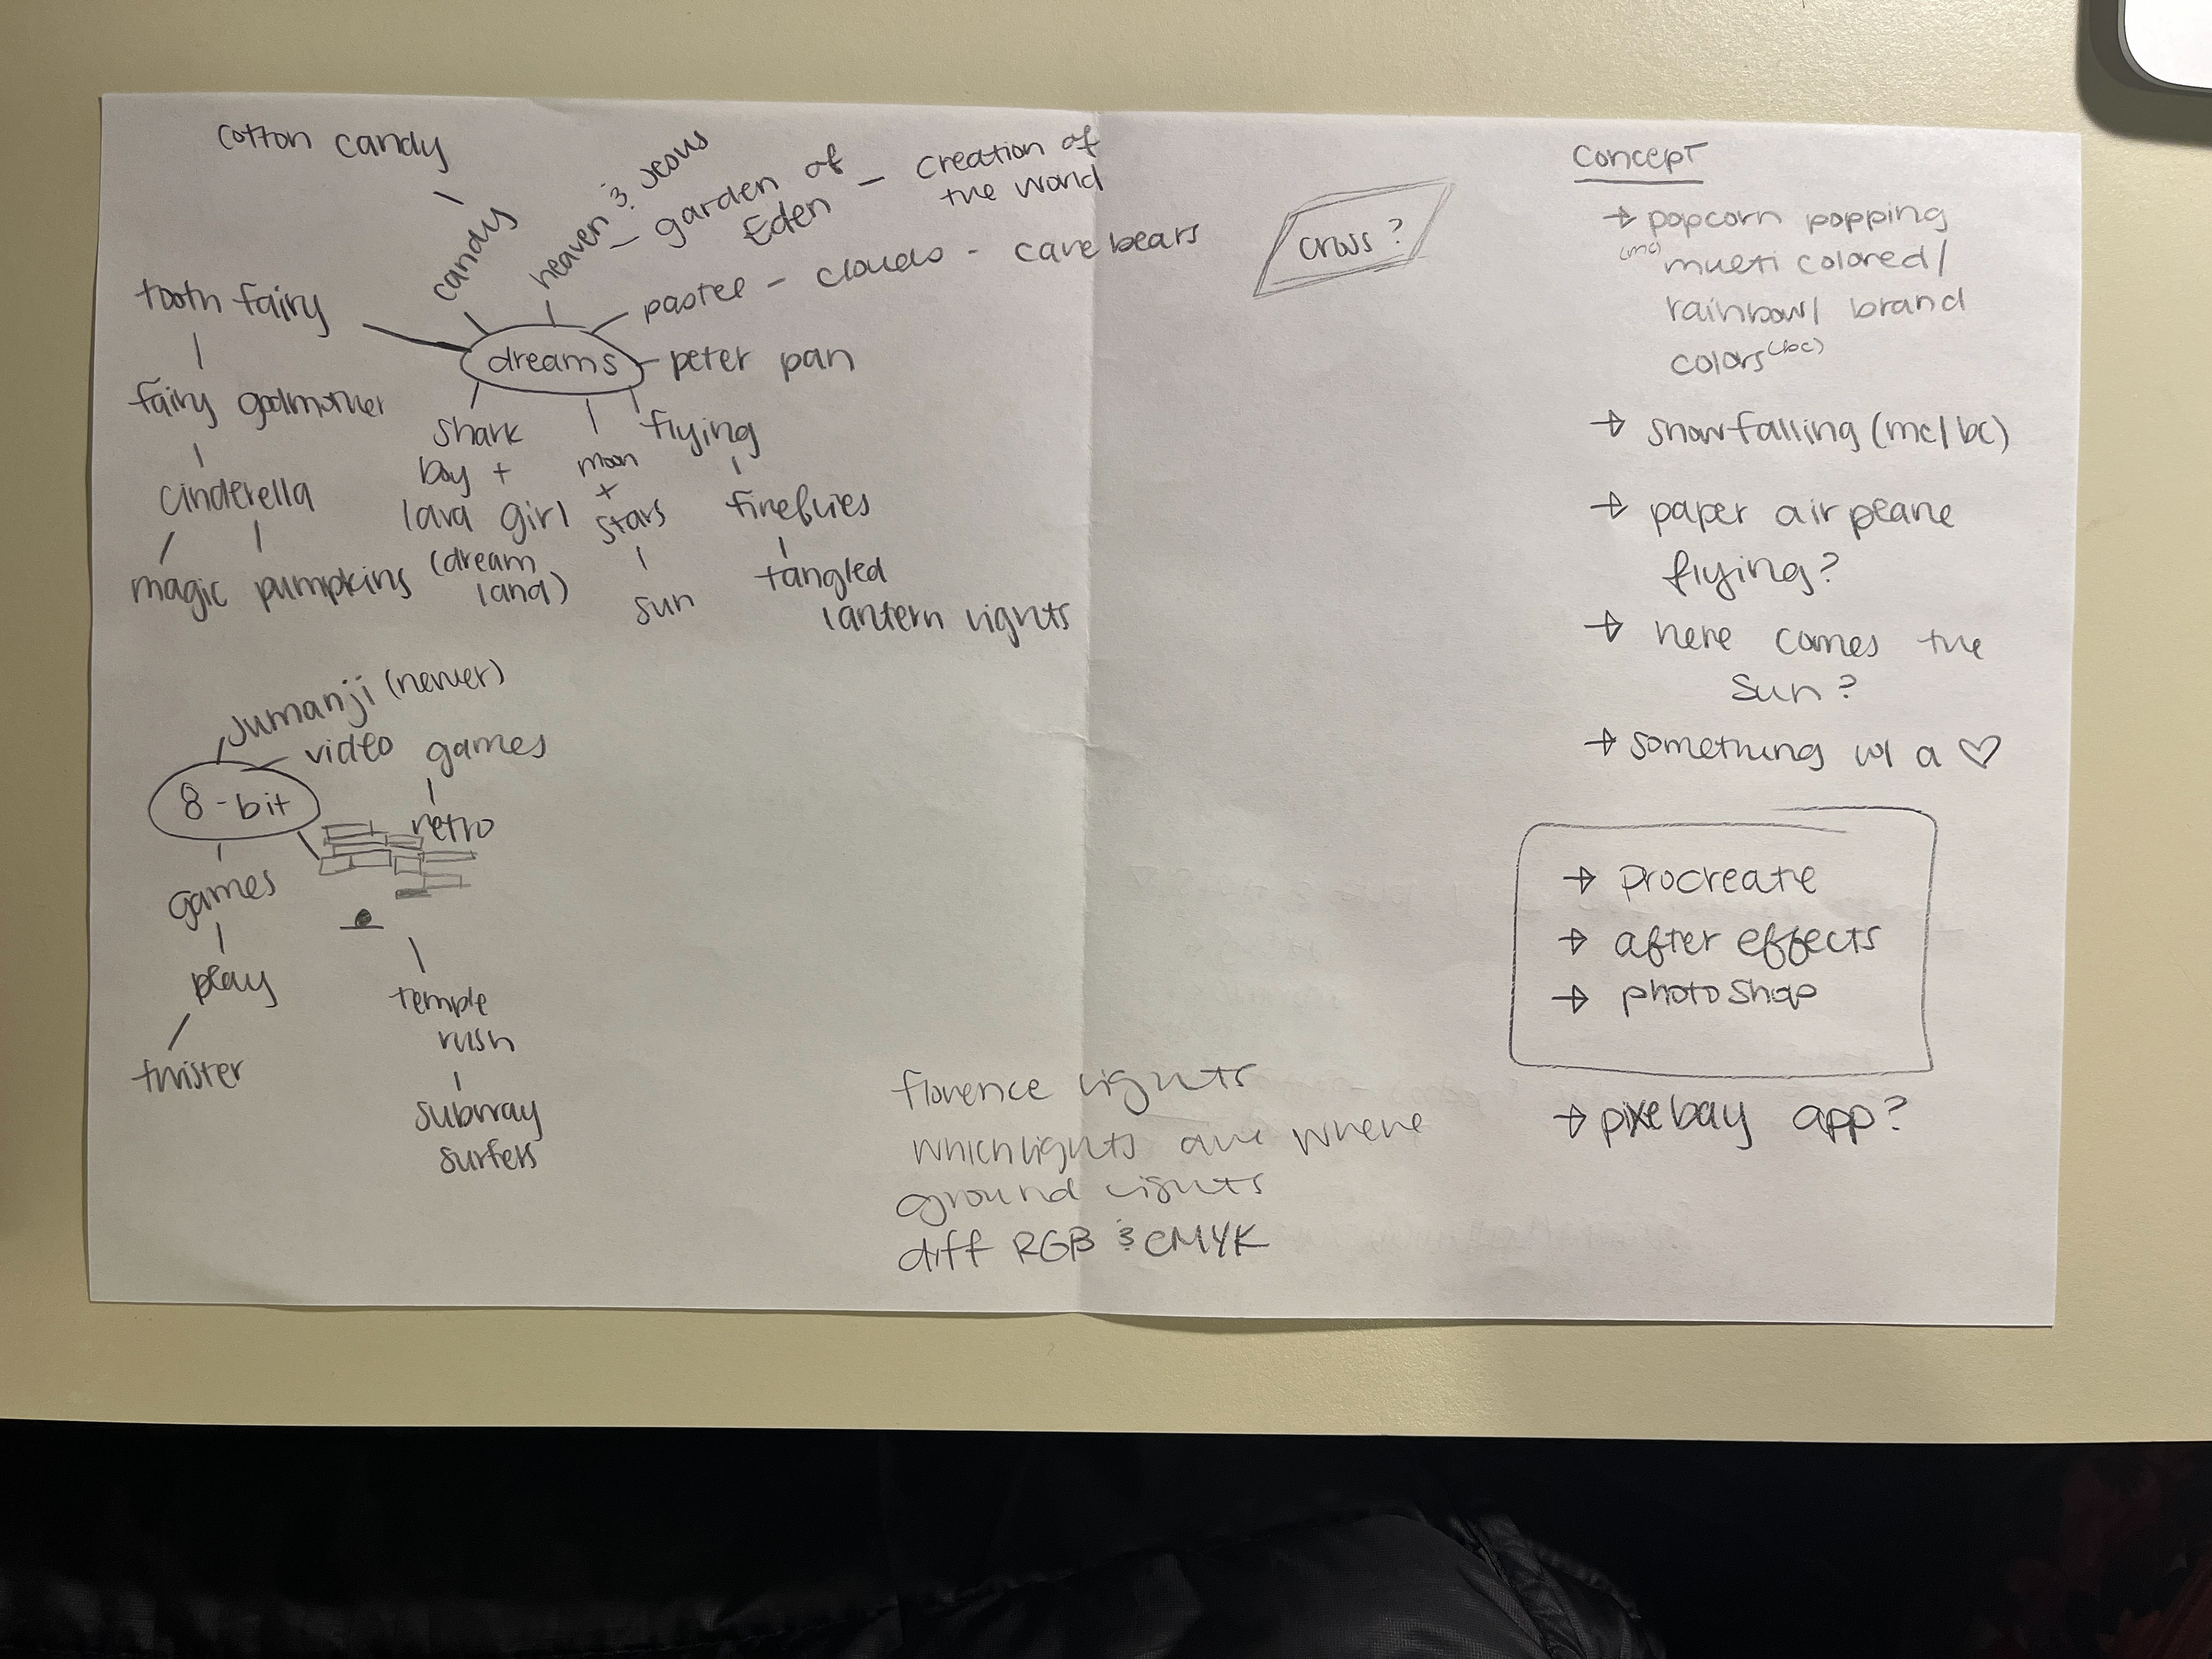 cotton candy
candy
heaven & Jesus
– garden of
Eden
– creation of
the world
pastel – clouds – care bears
tooth fairy
dreams
peter pan
fairy godmother
cinderella
magic pumpkins
shark
boy +
lava girl
(dream
land)
moon
+
stars
sun
flying
fireflies
tangled
lantern lights
Jumanji (newer)
video games
8-bit
retro
games
play
twister
temple
rush
subway
surfers
cross?
florence lights
which lights are where
ground lights
diff RGB & CMYK
Concept
→ popcorn popping
(mc) multi colored/
rainbow/ brand
colors (bc)
→ snow falling (mc/bc)
→ paper airplane
flying?
→ here comes the
sun?
→ something w/ a ♡
→ procreate
→ after effects
→ photoshop
→ pixebay app?